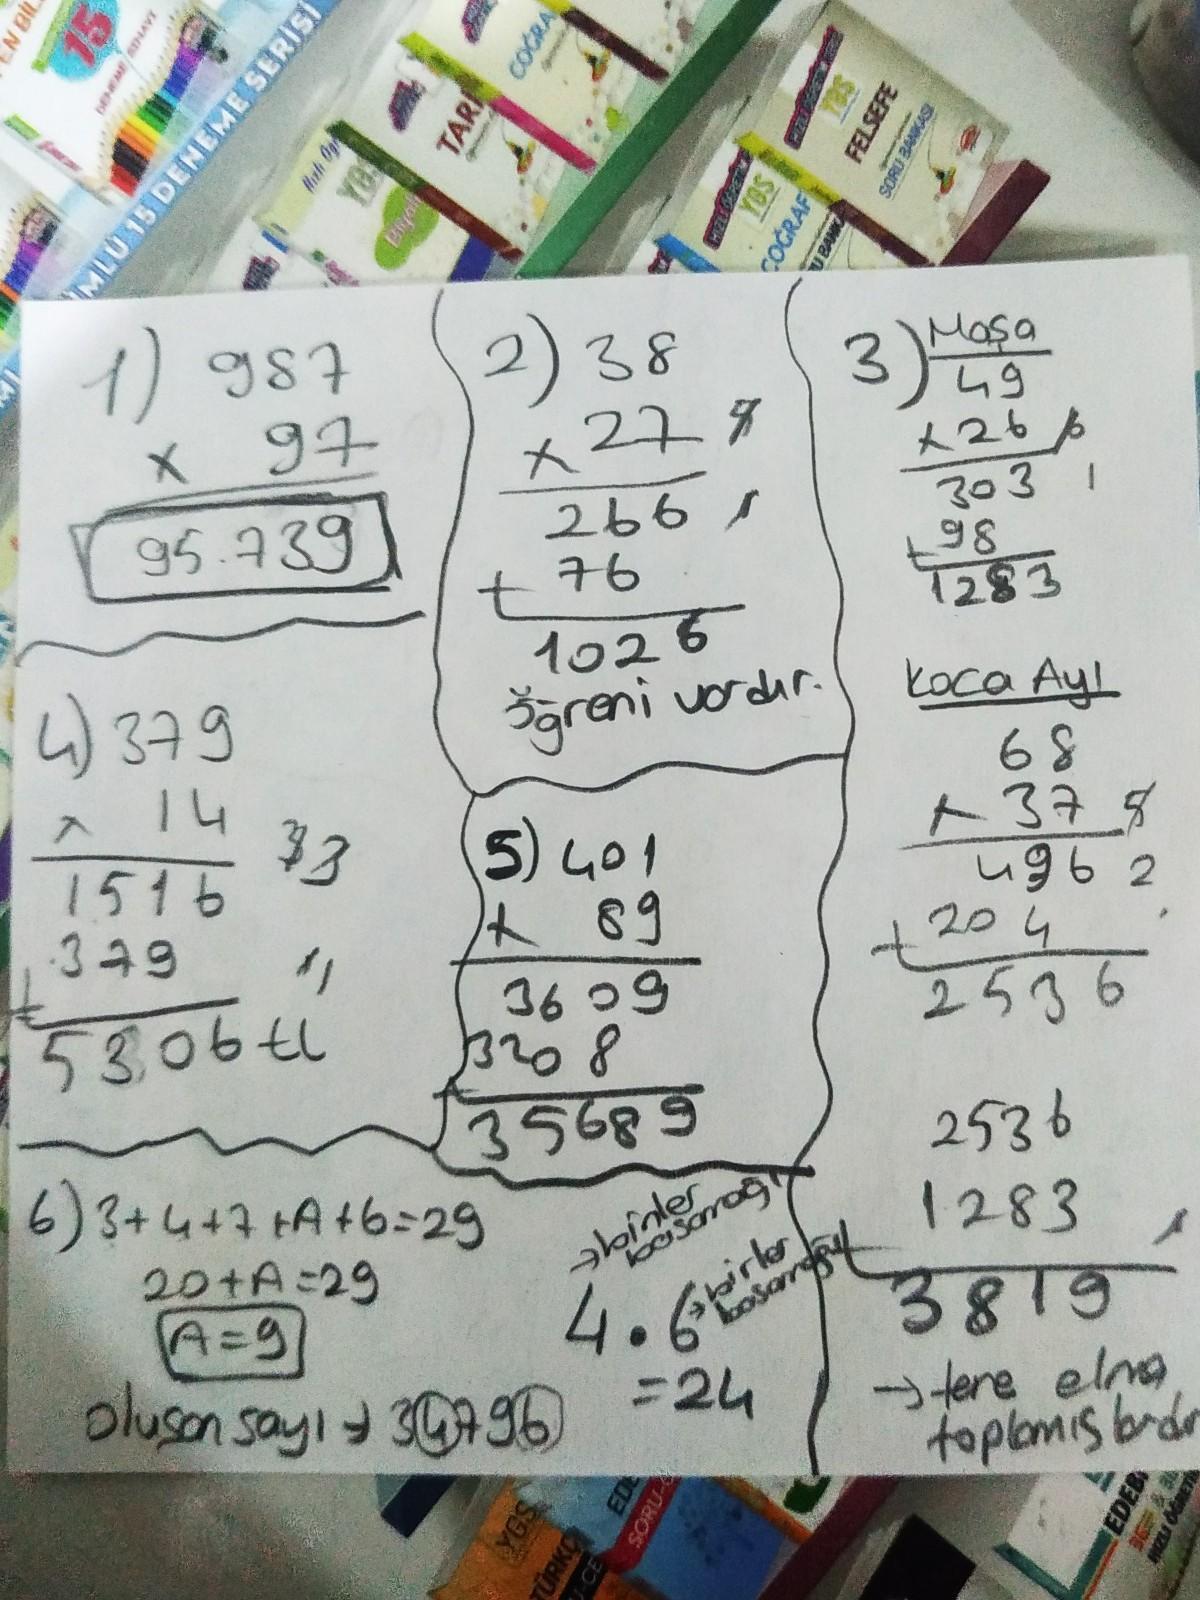 15
DENEME SINAVI
15 DENEME SERİSİ
TARİ
COĞRA
YBS
YBS
COĞRAF
YBS
FELSEFE
SORU BANKASI
1) 987
x 97
95.739
2) 38
x 27
266
+ 76
1026
öğreni vardır.
3) Maşa
49
x 26
303
+ 98
1283
Koca Ayı
68
x 37
496 2
+ 204
2536
2536
1283
+
3819
→ tane elma
toplamışlardır
4) 379
x 14
1516
+ 379
5306 tl
5) 401
x 89
3609
+ 3208
35689
6) 3+4+7+A+6=29
20+A=29
A=9
oluşan sayı → 34796
→ binler
basamağı
4 . 6 → birler
basamağı
= 24
YGS
TÜRKÇ
EDEB